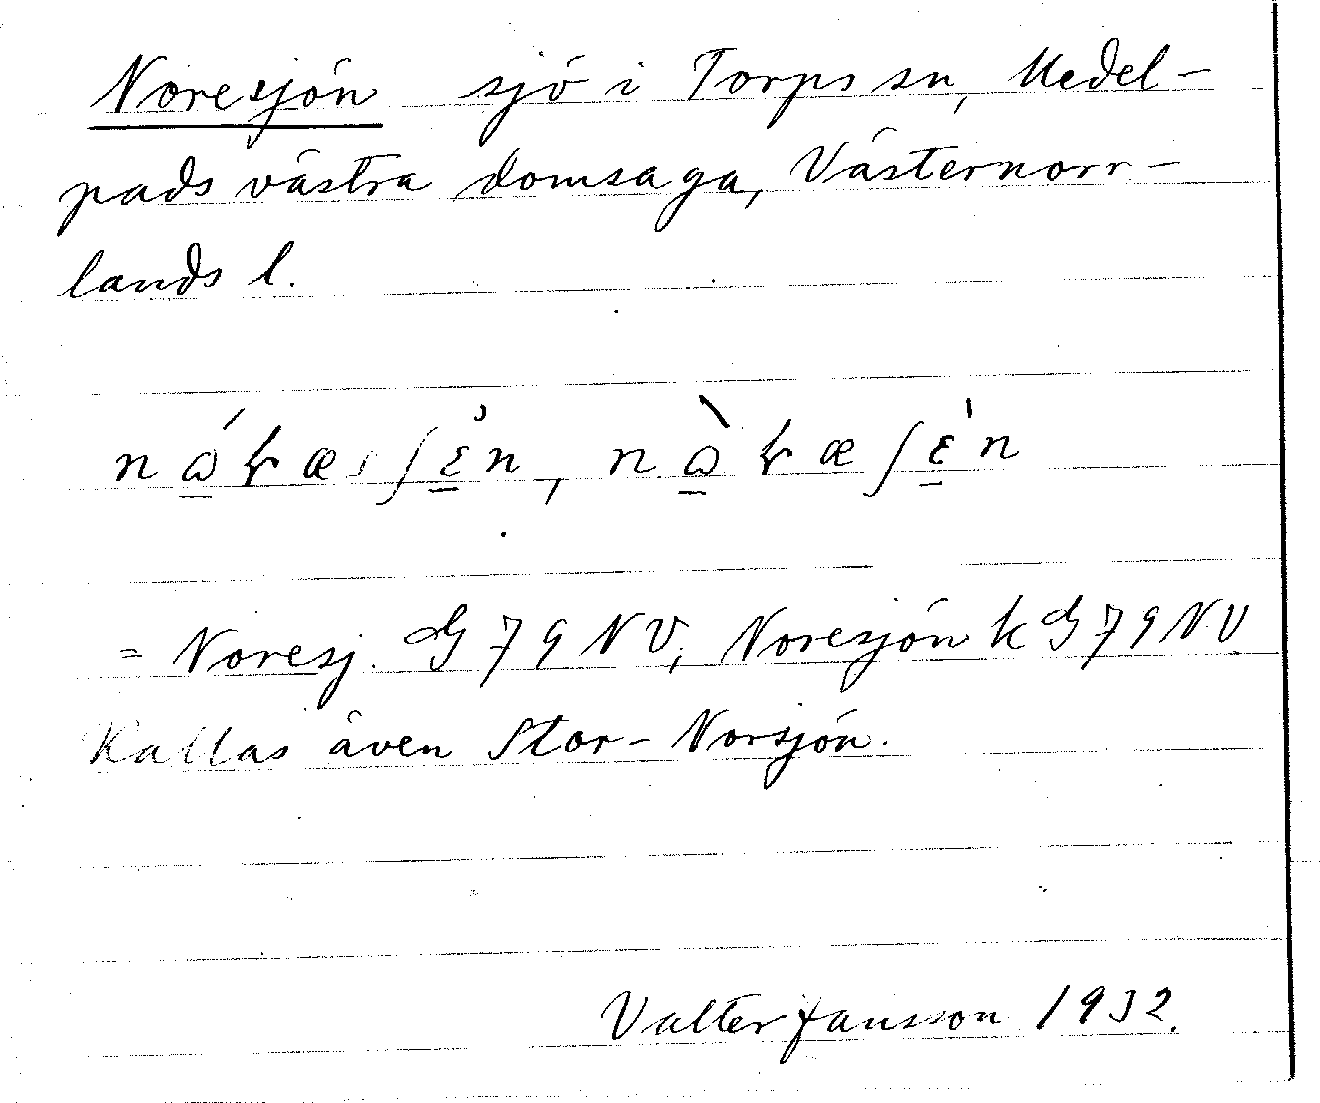 Noresjön sjö i Torps sn, Medel-
pads västra domsaga, Västernorr-
lands l.
= Noresj. G 79 NV, Noresjön k G 79 NV
Kallas även Stor-Norsjön.
Valter Jansson 1932.